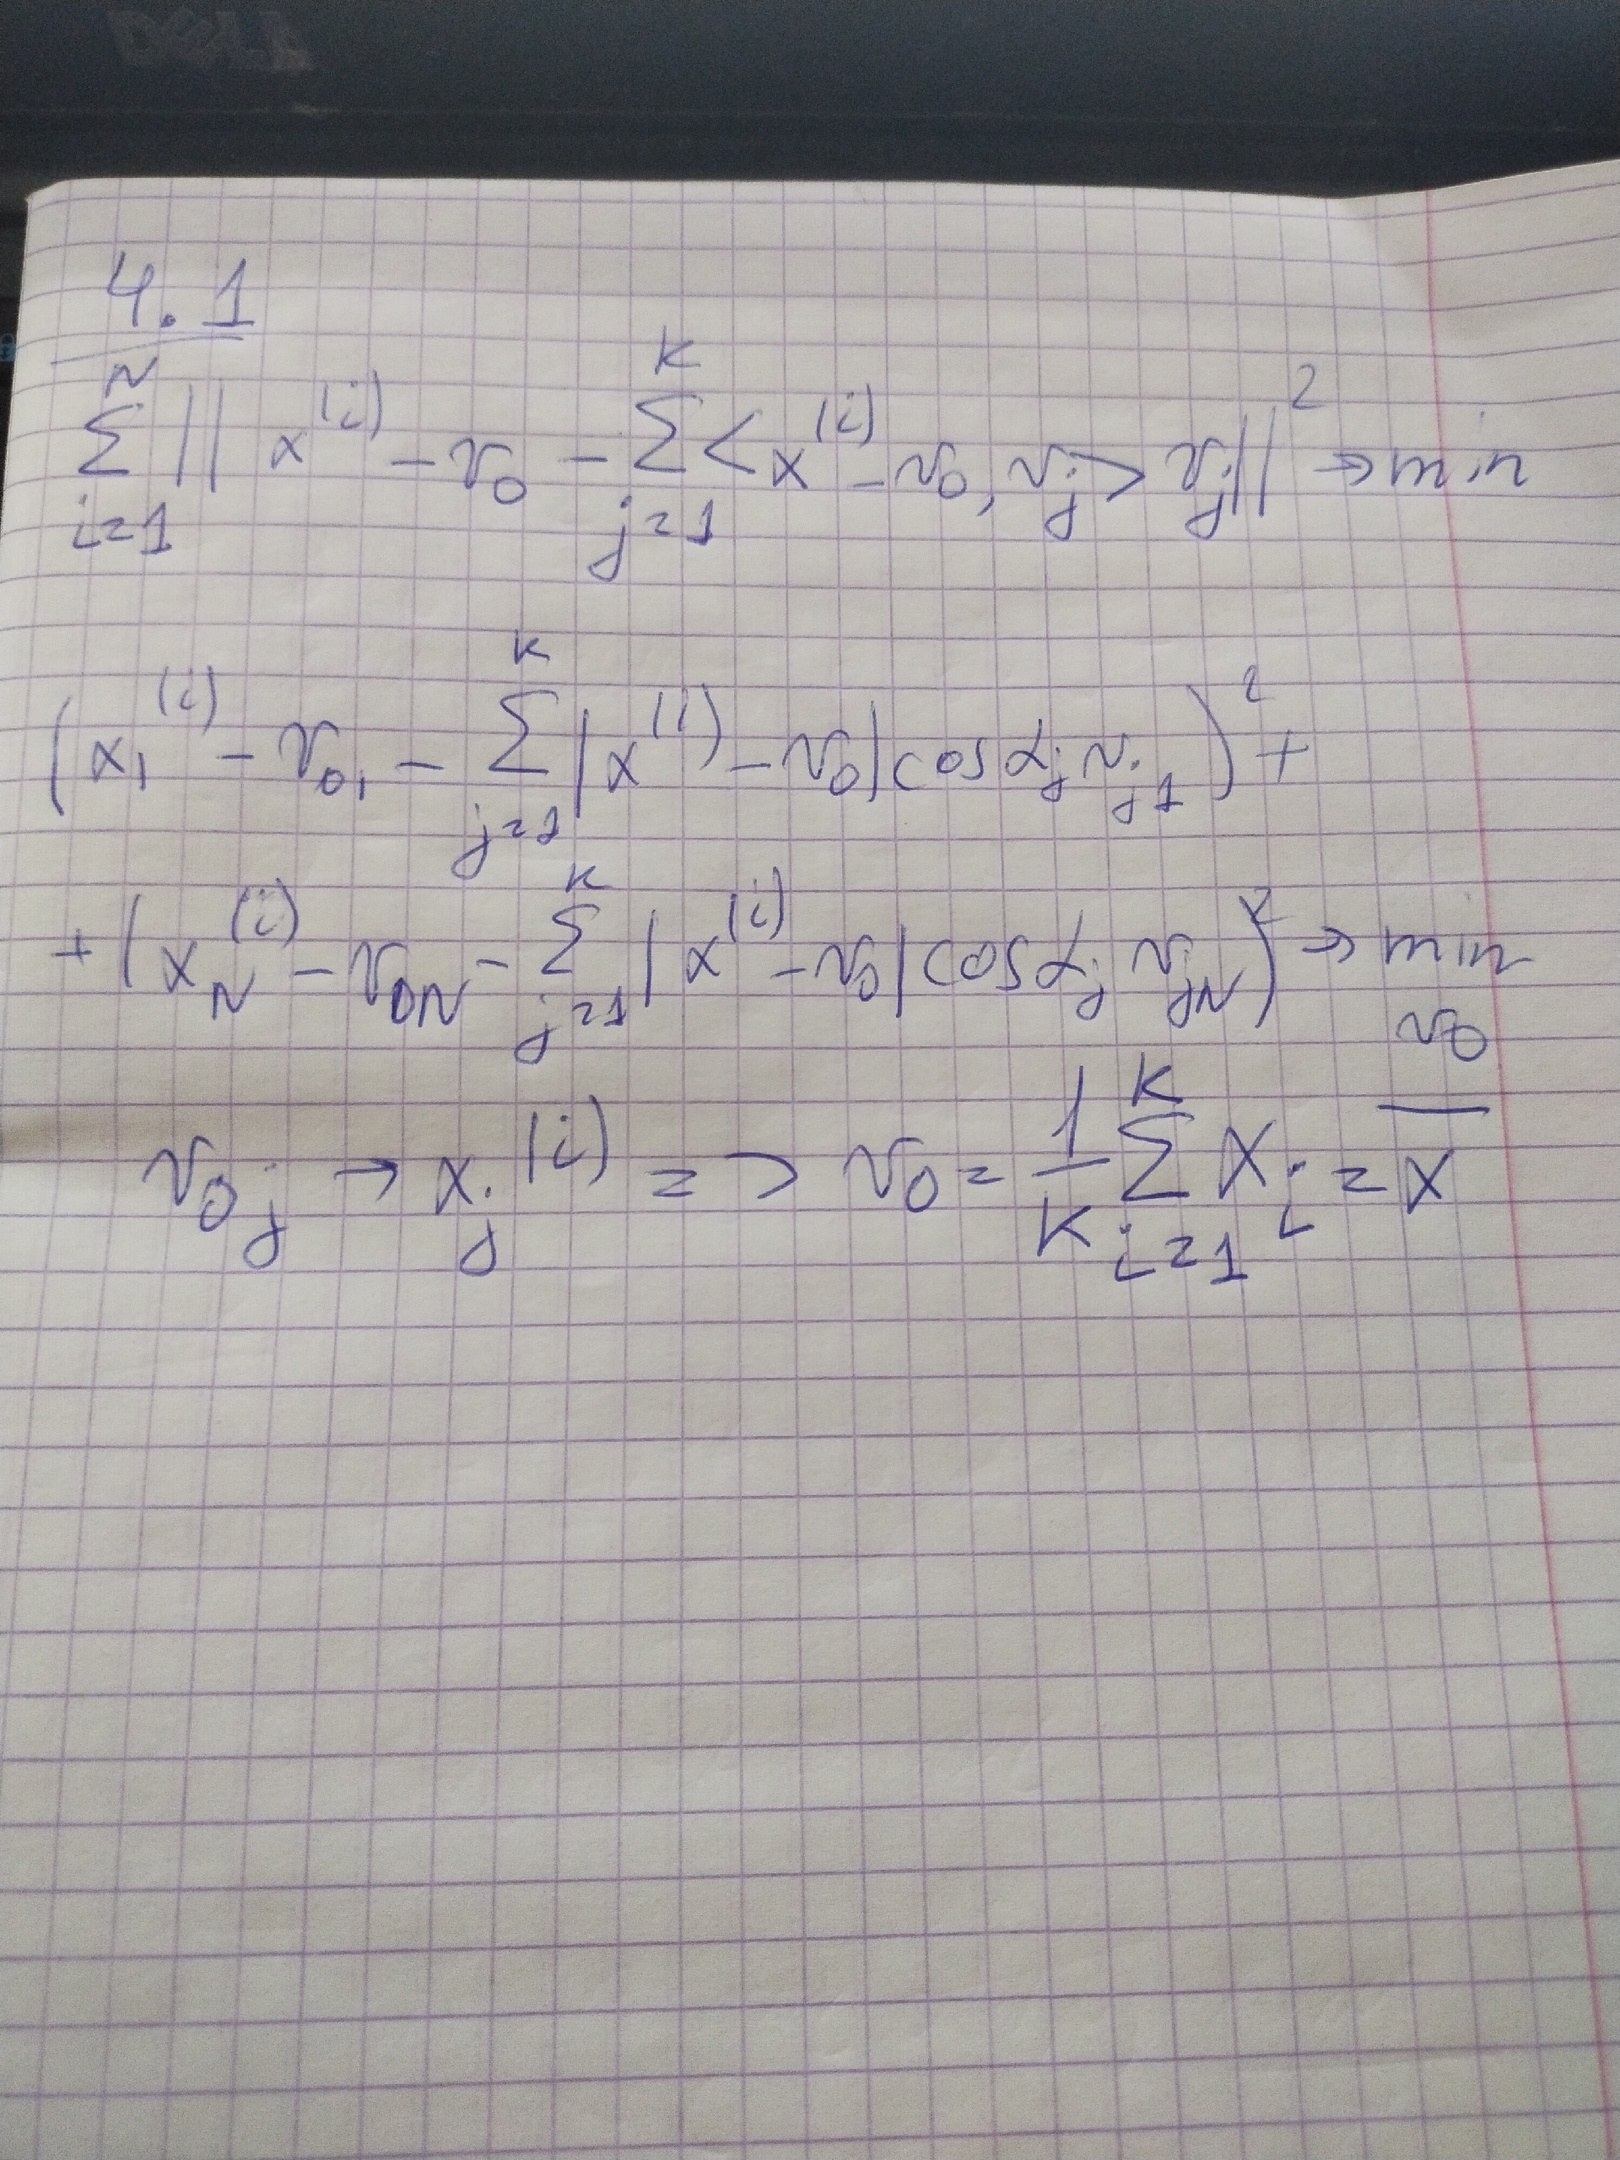 DELL
4.1
∑_{i=1}^{N} || x^{(i)} - v_0 - ∑_{j=1}^{K} < x^{(i)} - v_0, v_j > v_j ||^2 → min
(x_1^{(i)} - v_{01} - ∑_{j=1}^{K} |x^{(i)} - v_0| cos α_j v_{j1})^2 +
+ (x_N^{(i)} - v_{0N} - ∑_{j=1}^{K} |x^{(i)} - v_0| cos α_j v_{jN})^2 → min_{v_0}
v_{0j} → x_j^{(i)} => v_0 = \frac{1}{K} ∑_{i=1}^{K} x_i = \overline{x}